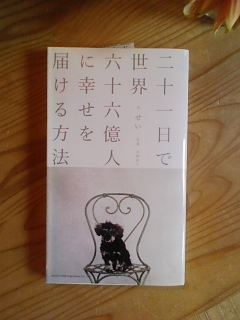 二十一日で
世界
六十六億人
に幸せを
届ける方法
せい